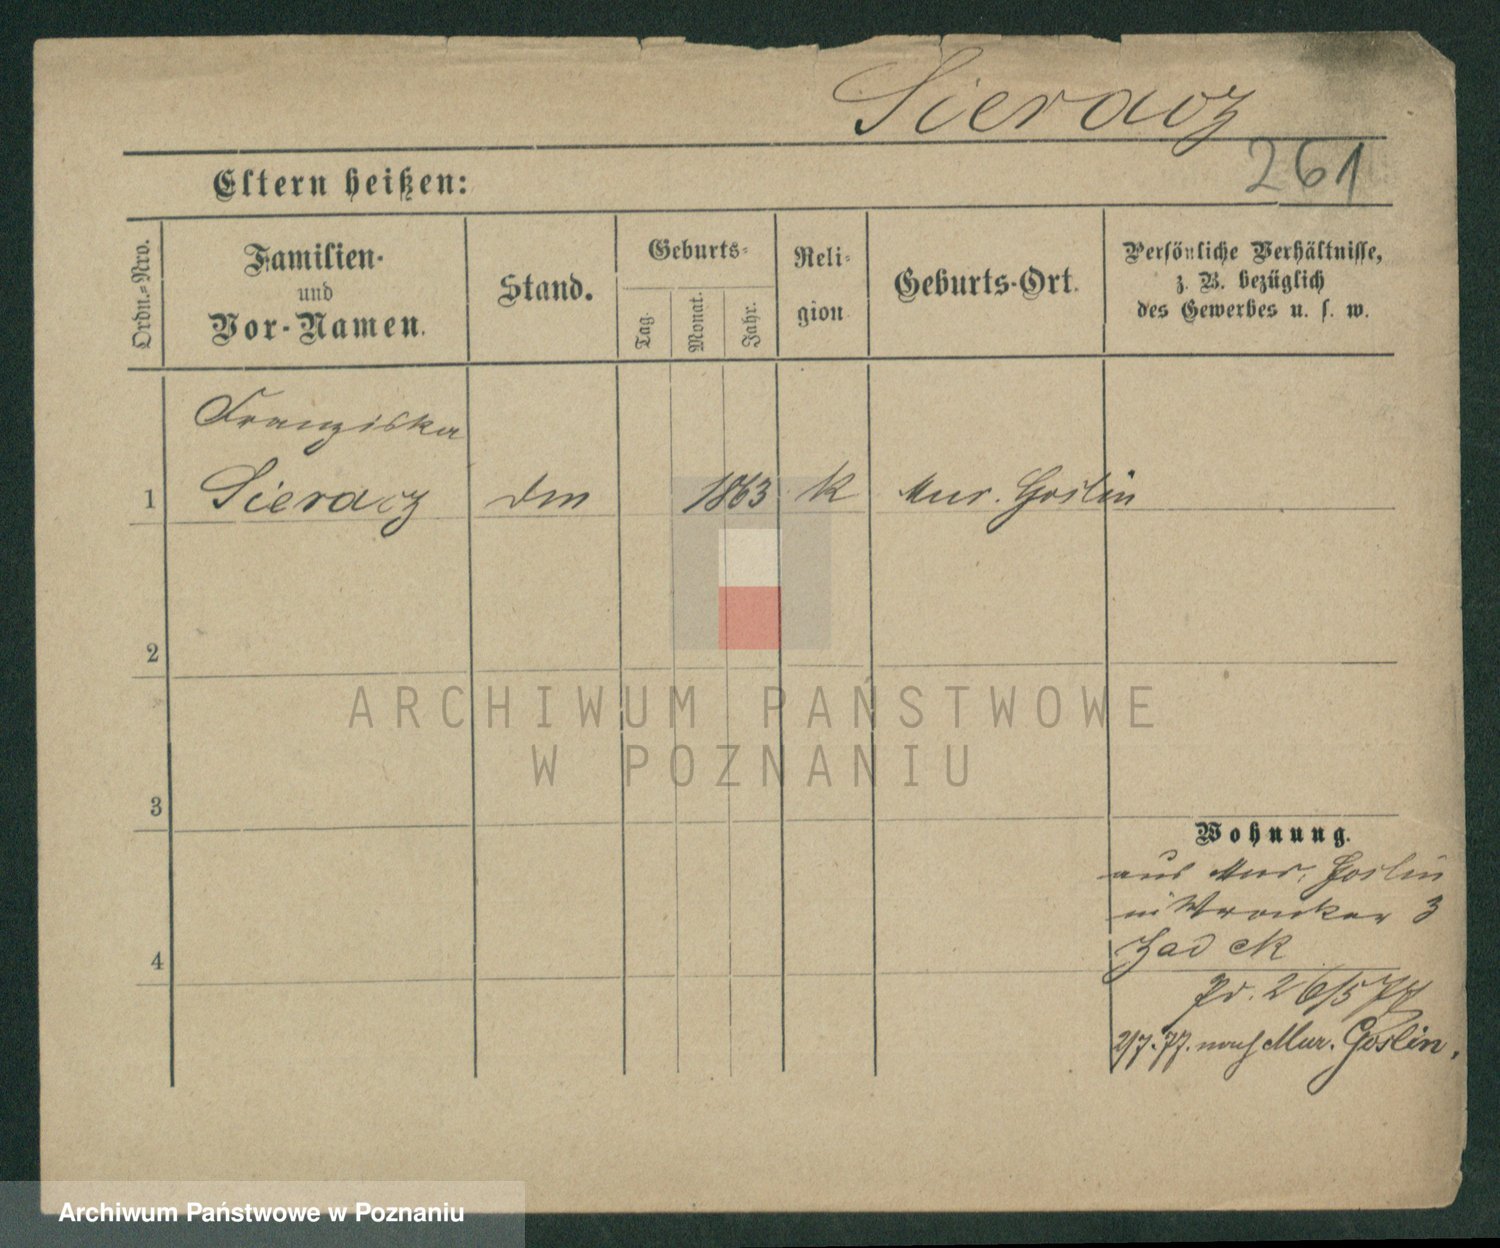 Sieracz
261
Eltern heißen:
Ordn.-Nro.
Familien-
und
Vor-Namen.
Stand.
Geburts-
Tag.
Monat.
Jahr.
Reli-
gion
Geburts-Ort.
Persönliche Verhältnisse,
z. B. bezüglich
des Gewerbes u. s. w.
Franziska
1 Sieracz 1863 K Mur. Goslin
2
3
Wohnung.
aus Mur. Goslin
Wronker 3
4
26/5 77
2/7. 77. nach Mur. Goslin.
ARCHIWUM PAŃSTWOWE
W POZNANIU
Archiwum Państwowe w Poznaniu